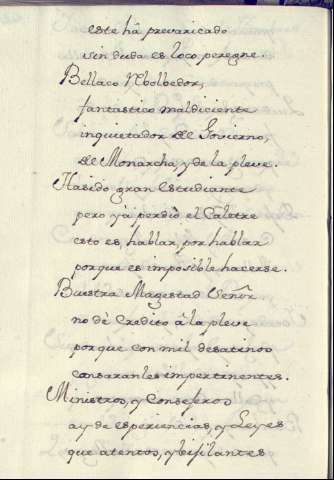 este hâ prevaricado
sin duda es loco peregne.
Bellaco Rbolbedor,
fantastico maldiciente
inquietador del Govierno,
del Monarcha, y de la pleve.
Ha sido gran Estudiante
pero yà perdiò el Caletre
esto es, hablar, por hablar
porque es imposible hacerse.
Buestra Magestad Señor
no dè Credito â la pleve
porque con mil desatinos
cansaran les impertinentes.
Ministros, y Consejeros
ay de esperiencias, y Leyes
que atentos, y bijilantes